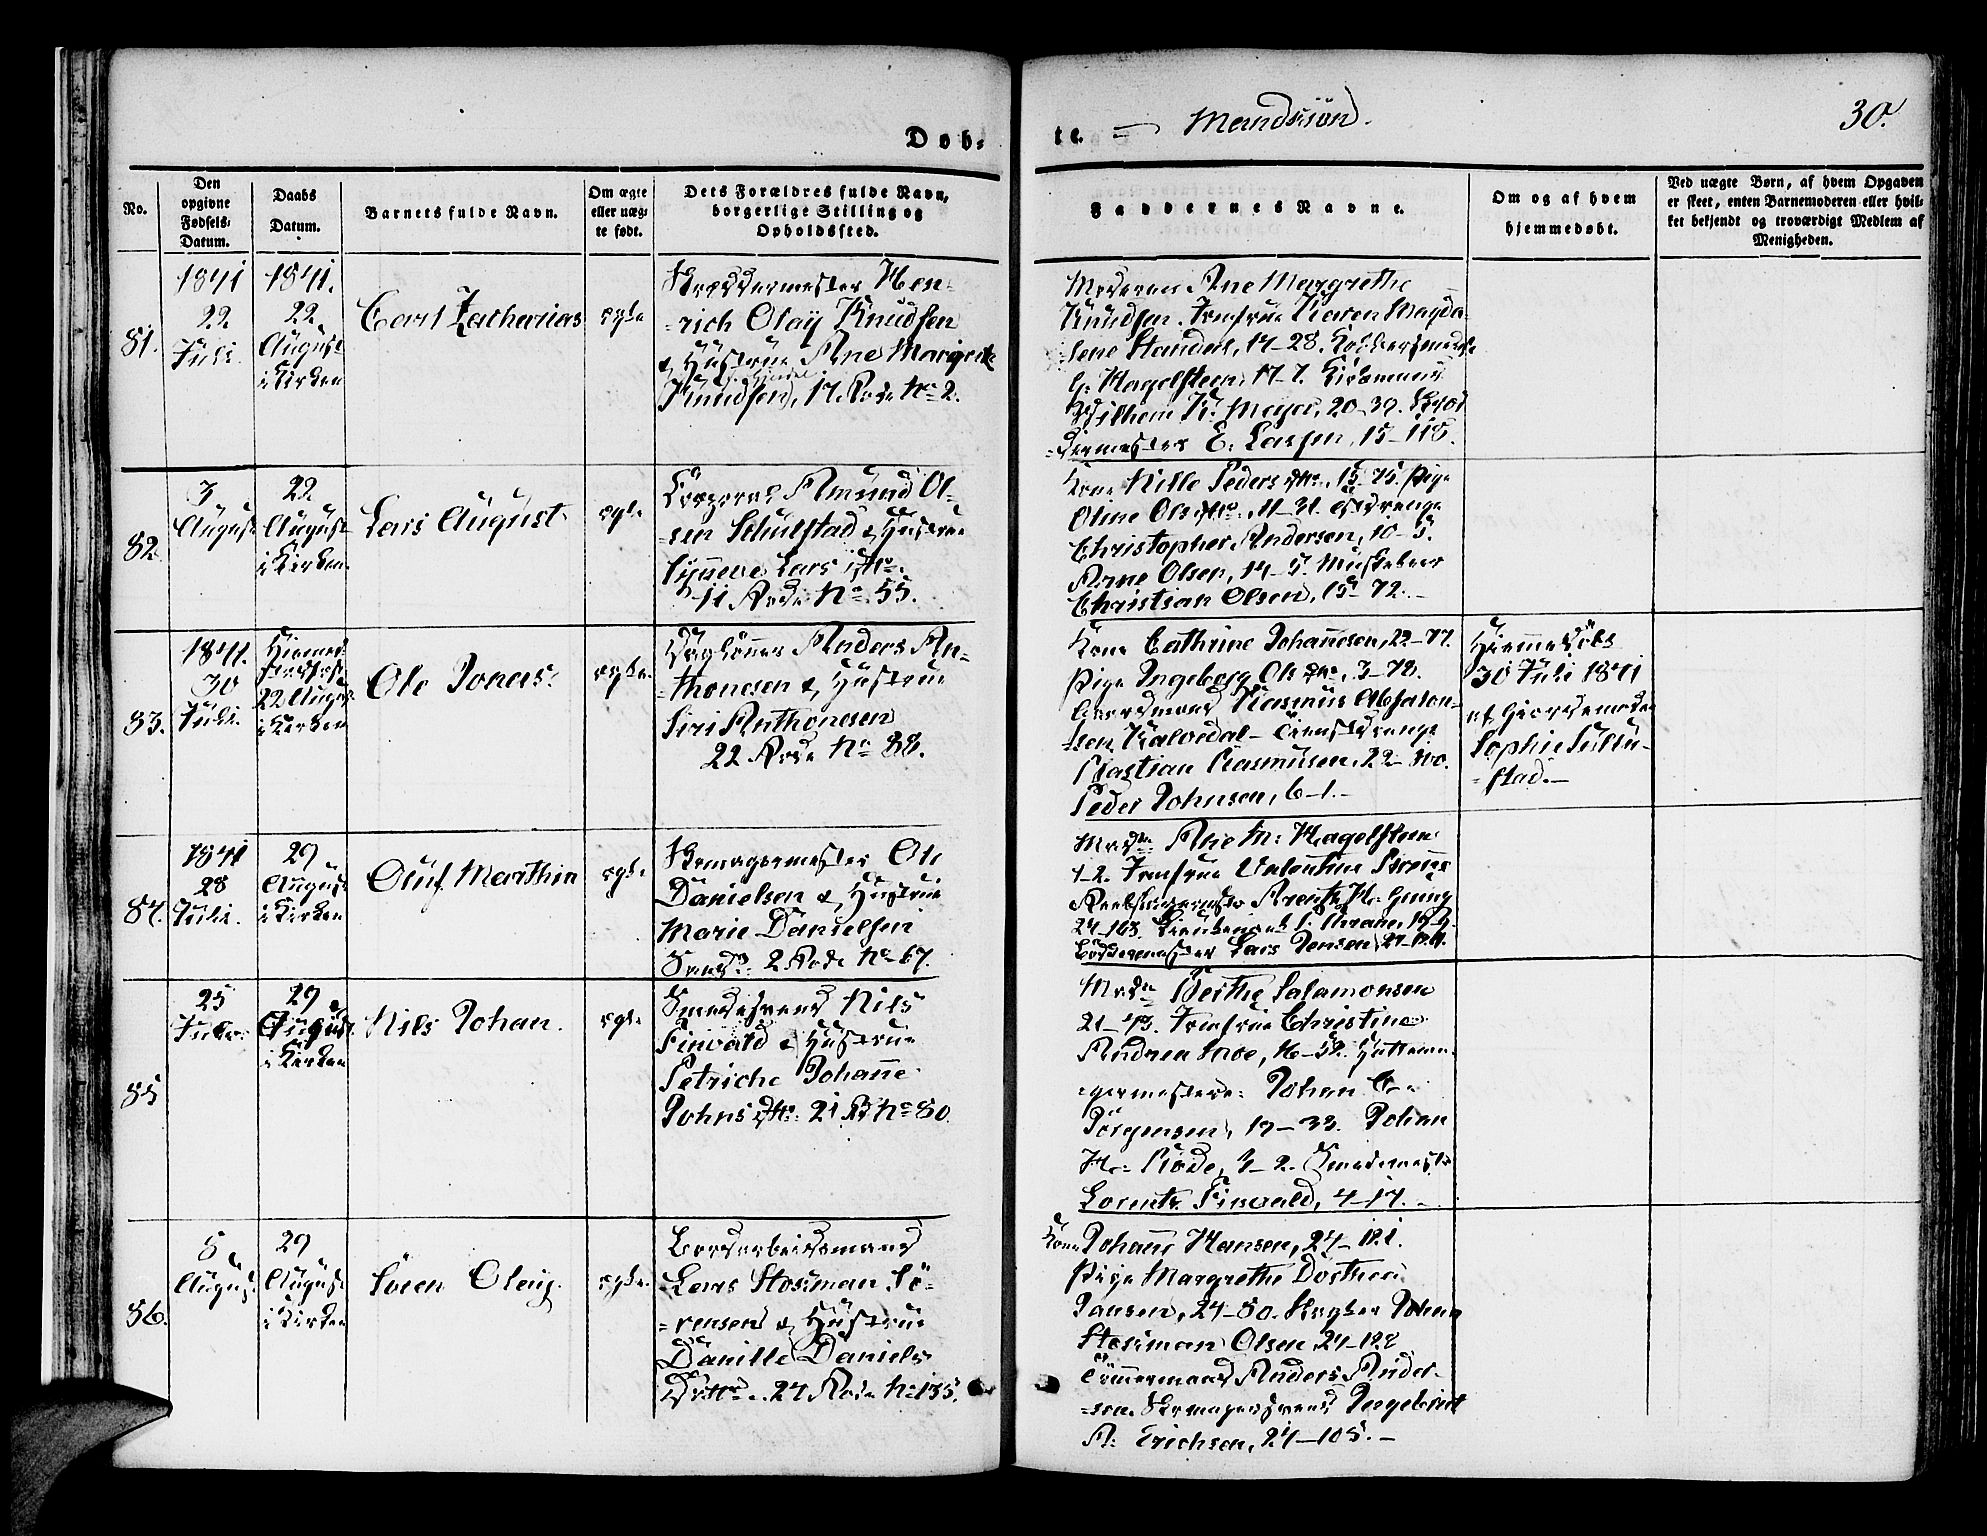 Døb-
te. = Mandkiøn.
30.
No.
Den opgivne Fødsels-Datum.
Daabs Datum.
Barnets fulde Navn.
Om ægte eller uæg-te født.
Dets Forældres fulde Navn, borgerlige Stilling og Opholdssted.
Faddernes Navne.
Om og af hvem hjemmedøbt.
Ved uægte Børn, af hvem Opgaven
er skeet, enten Barnemoderen eller hvil-
ket bekjendt og troværdigt Medlem af
Menigheden.
81.
1841
22
Juli.
1841.
22
August
i Kirken
Carl Zacharias
ægte
Skræddermester Hen-
-rich Olaÿ Knudsen
& Hustrue Ane Margrete
Knudsen, 17. Rode No 2.
Moderen Ane Margrethe
Knudsen. Jomfrue Karen Magda-
-lene Stander, 17-28.
G. Hagelsteen, 17-7.
Wilhem K. Meyer, 20-39. Skræd
-dermester E. Larsen, 15-118.
82.
3
August
22
August
i Kirken
Lars August
ægte
Corporal Amund Ol-
-sen Schulstad & Hustrue
Synneve Lars dtr.
11 Rode No 55.
Kone Nille Peders dtr. 15-75. Pige
Oline Ols dtr. 11-31.
Christopher Andersen, 10-5.
Arne Olsen, 14-5. Musketeer
Christian Olsen, 15-72.
83.
1841.
30
Juli.
Hiemme-
22 August
i Kirken
Ole Jonas.
ægte.
Anders An-
-thonesen & Hustrue
Siri Anthonesen
22 Rode No 88.
Kone Cathrine Johannesen, 22-77.
Pige Ingeborg Ols dtr., 3-78.
Rasmus Absalon-
-sen Kalvedal- Tienestdrenge
Bastian Rasmusen, 22-
Peder Johnsen, 6-1.-
Hiemmedøbt
30 Juli 1841
af Giordemoder
Sophie
-stad.-
84.
1841
28
Juli.
29
August
i Kirken
Oluf Marthin
ægte
Skomagermester Ole
Danielsen & Hustrue
Marie Danielsen
2 Rode No 67.
Madme Ane M: Hagelsteen
1-2. Jomfrue Valentine
Lars Jensen,
85
25
Juli.
29
August
i Kirken
Nils Johan.
ægte
Smedesvend Nils
Finvald & Hustrue
Petriche Johanne
Johns dtr. 21 R No 80.
Madme Berthe Salamonsen
21-43. Jomfrue Christine
Andrea Moe, 16-52. Hattema-
-germestere: Johan C.
Jörgensen, 19-33. Johan
H. Röde, 3-2. Smedemester
Lorentz Finvald, 4-17.
86.
5
August
29
August
i Kirken
Sören Olaÿ.
ægte.
Bordarbeidsmand
Lars Stosiman Sö-
-rensen & Hustrue
Danille Daniels
Dtr. 24 Rode No 135.
Kone Johanne Hansen, 24-121.
Pige Margrethe Dorthea
Jansen, 24-80. Johan
Stosiman Olsen 24-128
Tömmermand Anders Ander-
-sen. Skomagersvend Ingebrigt
A: Erichsen, 24-105.-